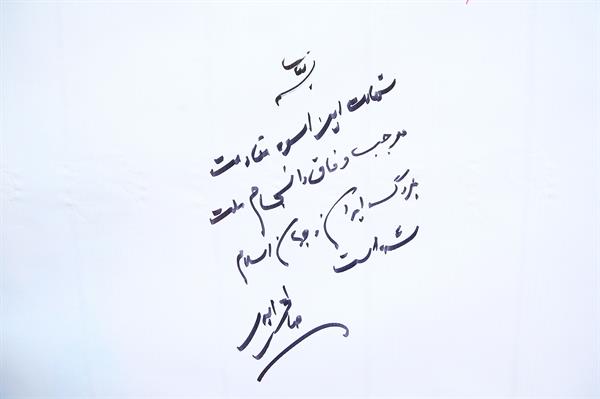 بسمه تعالی
شهادت این اسوه مقاومت
موجب وفاق و انسجام ملت
بزرگ ایران و جهان اسلام
شده است
صالحی امیری